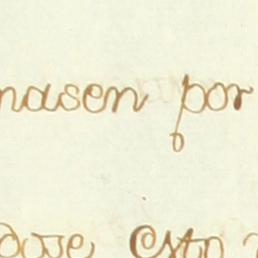 nasen por
dose Esto